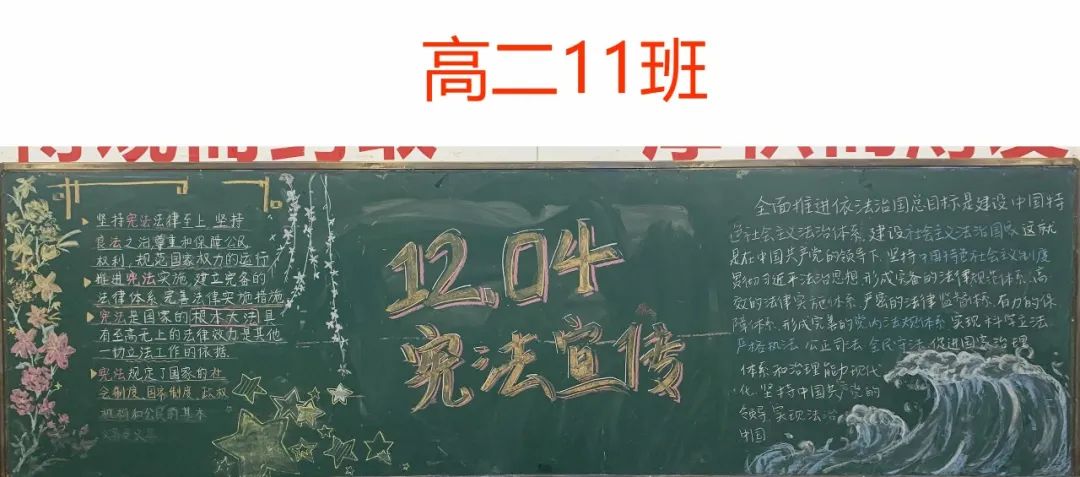 高二11班
坚持宪法法律至上 坚持
良法之治尊重和保障公民
权利，规范国家权力的运行
推进宪法实施，建立完备的
法律体系 完善法律实施措施
宪法是国家的根本大法具
有至高无上的法律效力是其他
一切立法工作的依据.
宪法规定了国家的社
会制度 国家制度
和公民的基本
12.04
宪法宣传
全面推进依法治国总目标是建设中国特
色社会主义法治体系，建设社会主义法治国家 这就
是在中国共产党的领导下，坚持中国特色社会主义制度
习近平法治思想 形成完备的法律规范体系、高
效的法律实施体系、严密的法律监督体系、有力的保
障体系，形成完善的党内法规体系 实现科学立法
严格执法 公正司法 全民守法，促进国家治理
体系和治理能力现代
化，坚持中国共产党的
领导，实现法治
中国